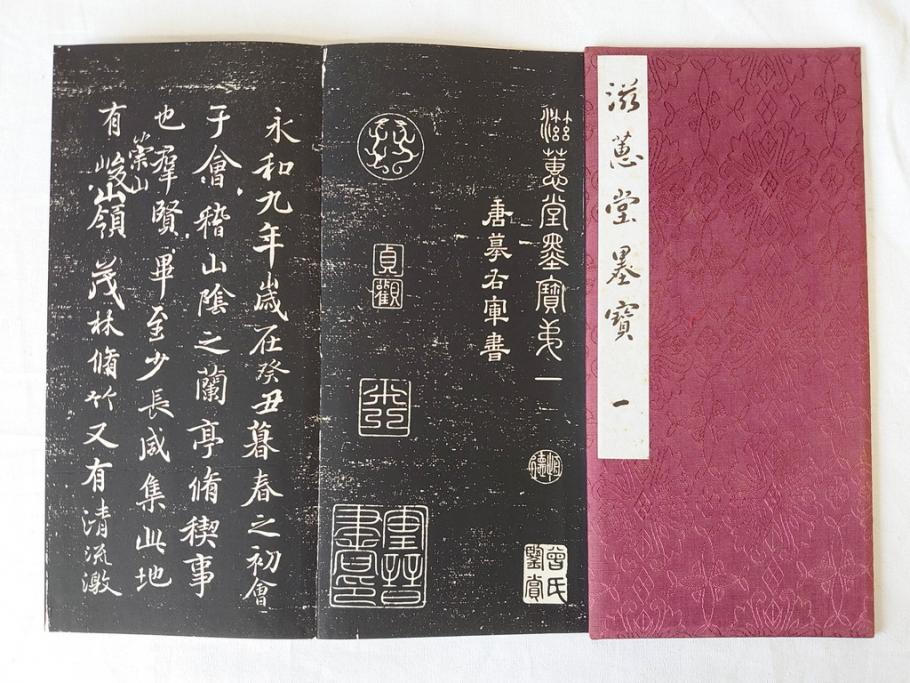 滋蕙堂墨寶 一
滋蕙堂墨寶弟一
唐摹右軍書
曾氏鑒賞
貞觀
永和九年歲在癸丑暮春之初會
于會稽山陰之蘭亭脩稧事
也羣賢畢至少長咸集此地
有崇山峻嶺茂林脩竹又有清流激